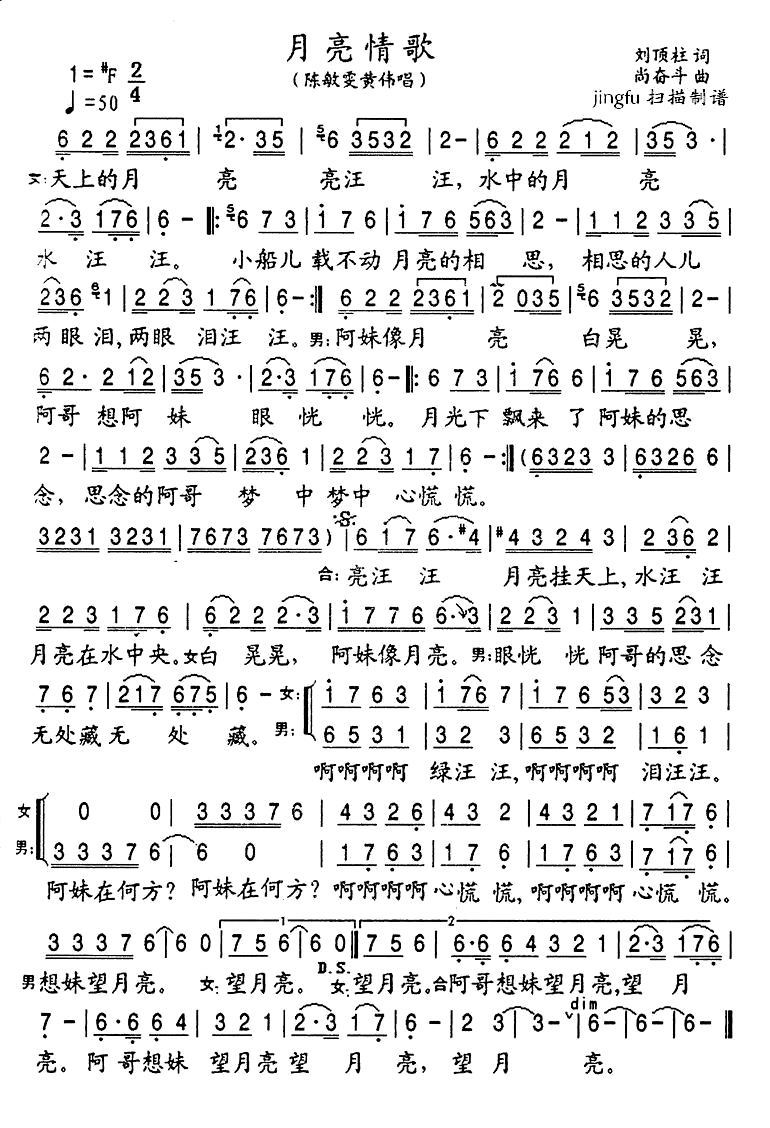 月亮情歌
(陈敏雯黄伟唱)
刘顶柱 词
尚奋斗 曲
jingfu 扫描制谱
1=#F 2/4
♩=50
6 2 2 2361 | 2· 35 | 6 3532 | 2- | 6 2 2 2 1 2 | 35 3 · |
女:天上的月 亮 亮汪 汪, 水中的月 亮
2·3 176 | 6 - |: 6 7 3 | 1 7 6 | 1 7 6 563 | 2 - | 1 1 2 3 3 5 |
水 汪 汪。 小船儿 载不动 月亮的相 思, 相思的人儿
236 1 | 2 2 3 1 76 | 6 - :| 6 2 2 2361 | 2 035 | 6 3532 | 2- |
两眼泪,两眼 泪汪 汪。男:阿妹像月 亮 白晃 晃,
6 2· 2 12 | 35 3 · | 2·3 176 | 6 - |: 6 7 3 | 1 76 6 | 1 7 6 563 |
阿哥 想阿 妹 眼 恍 恍。 月光下 飘来 了 阿妹的思
2 - | 1 1 2 3 3 5 | 236 1 | 2 2 3 1 7 | 6 - :| (6323 3 | 6326 6 |
念, 思念的阿哥 梦 中梦中 心慌 慌。
3231 3231 | 7673 7673 ) | 6 1 7 6·#4 | #4 3 2 4 3 | 2 36 2 |
合: 亮汪 汪 月亮挂天上, 水汪 汪
2 2 3 1 7 6 | 6 2 2 2·3 | 1 7 7 6 6·3 | 2 2 3 1 | 3 3 5 231 |
月亮在水中央。女白 晃晃, 阿妹像月亮。男:眼恍 恍 阿哥的思念
7 6 7 | 217 675 | 6 - 女: 1 7 6 3 | 1 76 7 | 1 7 6 53 | 3 2 3 |
男: 6 5 3 1 | 3 2 3 | 6 5 3 2 | 1 6 1 |
无处藏无 处 藏。 啊啊啊啊 绿汪 汪,啊啊啊啊 泪汪汪。
女 0 0 | 3 3 3 7 6 | 4 3 2 6 | 4 3 2 | 4 3 2 1 | 7 17 6 |
男: 3 3 3 7 6 | 6 0 | 1 7 6 3 | 1 7 6 | 1 7 6 3 | 7 17 6 |
阿妹在何方? 阿妹在何方? 啊啊啊啊心慌 慌,啊啊啊啊心慌 慌。
1 2
3 3 3 7 6 | 6 0 | 7 5 6 | 6 0 || 7 5 6 | 6·6 6 4 3 2 1 | 2·3 176 |
D.S.
男想妹望月亮。 女: 望月亮。 女:望月亮。合阿哥想妹望月亮,望 月
dim
7 - | 6·6 6 4 | 3 2 1 | 2·3 1 7 | 6 - | 2 3 | 3- | 6- | 6- | 6- ||
亮。 阿哥想妹 望月亮望 月 亮, 望 月 亮。